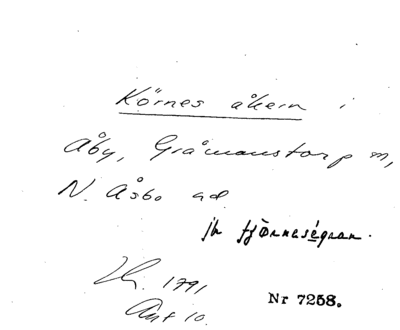 Körnes åkern i
Åby, Gråmanstorp m,
N. Åsbo ad
jh tjörneségran.
1791
Akt 10.
Nr 7258.